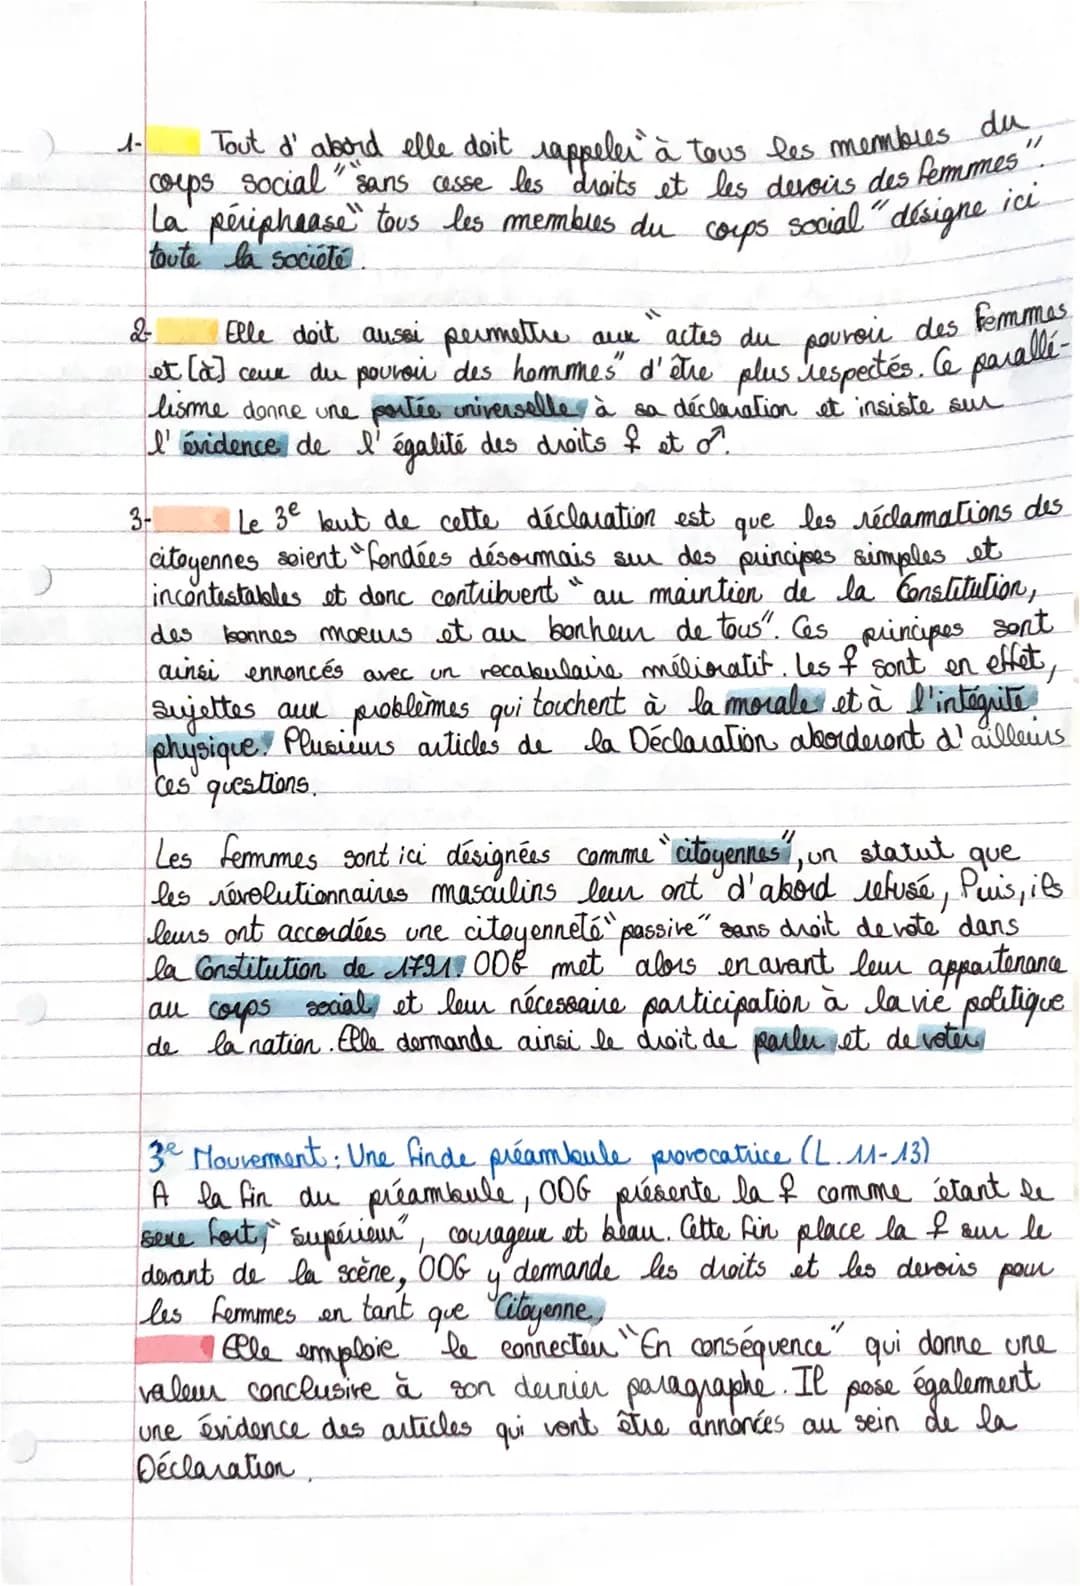 1- Tout d'abord elle doit rappeler "à tous les membres du
corps social" "sans cesse les droits et les devoirs des femmes".
La périphrase "tous les membres du corps social" désigne ici
toute la société.
2- Elle doit aussi permettre aux "actes du pouvoir des femmes
et [à] ceux du pouvoir des hommes" d'être plus respectés. Ce parallé-
lisme donne une portée universelle à sa déclaration et insiste sur
l'évidence de l'égalité des droits ♀ et ♂.
3- Le 3e but de cette déclaration est que les réclamations des
citoyennes soient "fondées désormais sur des principes simples et
incontestables et donc contribuent " au maintien de la Constitution,
des bonnes moeurs et au bonheur de tous". Ces principes sont
ainsi ennoncés avec un vocabulaire mélioratif. Les ♀ sont en effet,
sujettes aux problèmes qui touchent à la morale et à l'intégrité
physique. Plusieurs articles de la Déclaration aborderont d'ailleurs
ces questions.
Les femmes sont ici désignées comme "citoyennes", un statut que
les révolutionnaires masculins leur ont d'abord refusé, Puis, ils
leurs ont accordées une citoyenneté "passive" sans droit de vote dans
la Constitution de 1791. ODG met alors en avant leur appartenance
au corps social et leur nécessaire participation à la vie politique
de la nation. Elle demande ainsi le droit de parler et de voter
3e Mouvement : Une fin de préambule provocatrice (L.11-13)
A la fin du préambule, ODG présente la ♀ comme étant le
sexe fort, "supérieur", courageux et beau. Cette fin place la ♀ sur le
devant de la scène, ODG y demande les droits et les devoirs pour
les femmes en tant que Citoyenne,
Elle emploie le connecteur "En conséquence" qui donne une
valeur conclusive à son dernier paragraphe. Il pose également
une évidence des articles qui vont être annoncés au sein de la
Déclaration.